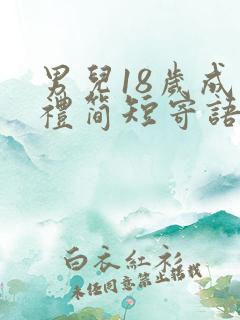 男兒18歲成
禮簡短寄語
白衣紅衫
未經同意禁止搭載